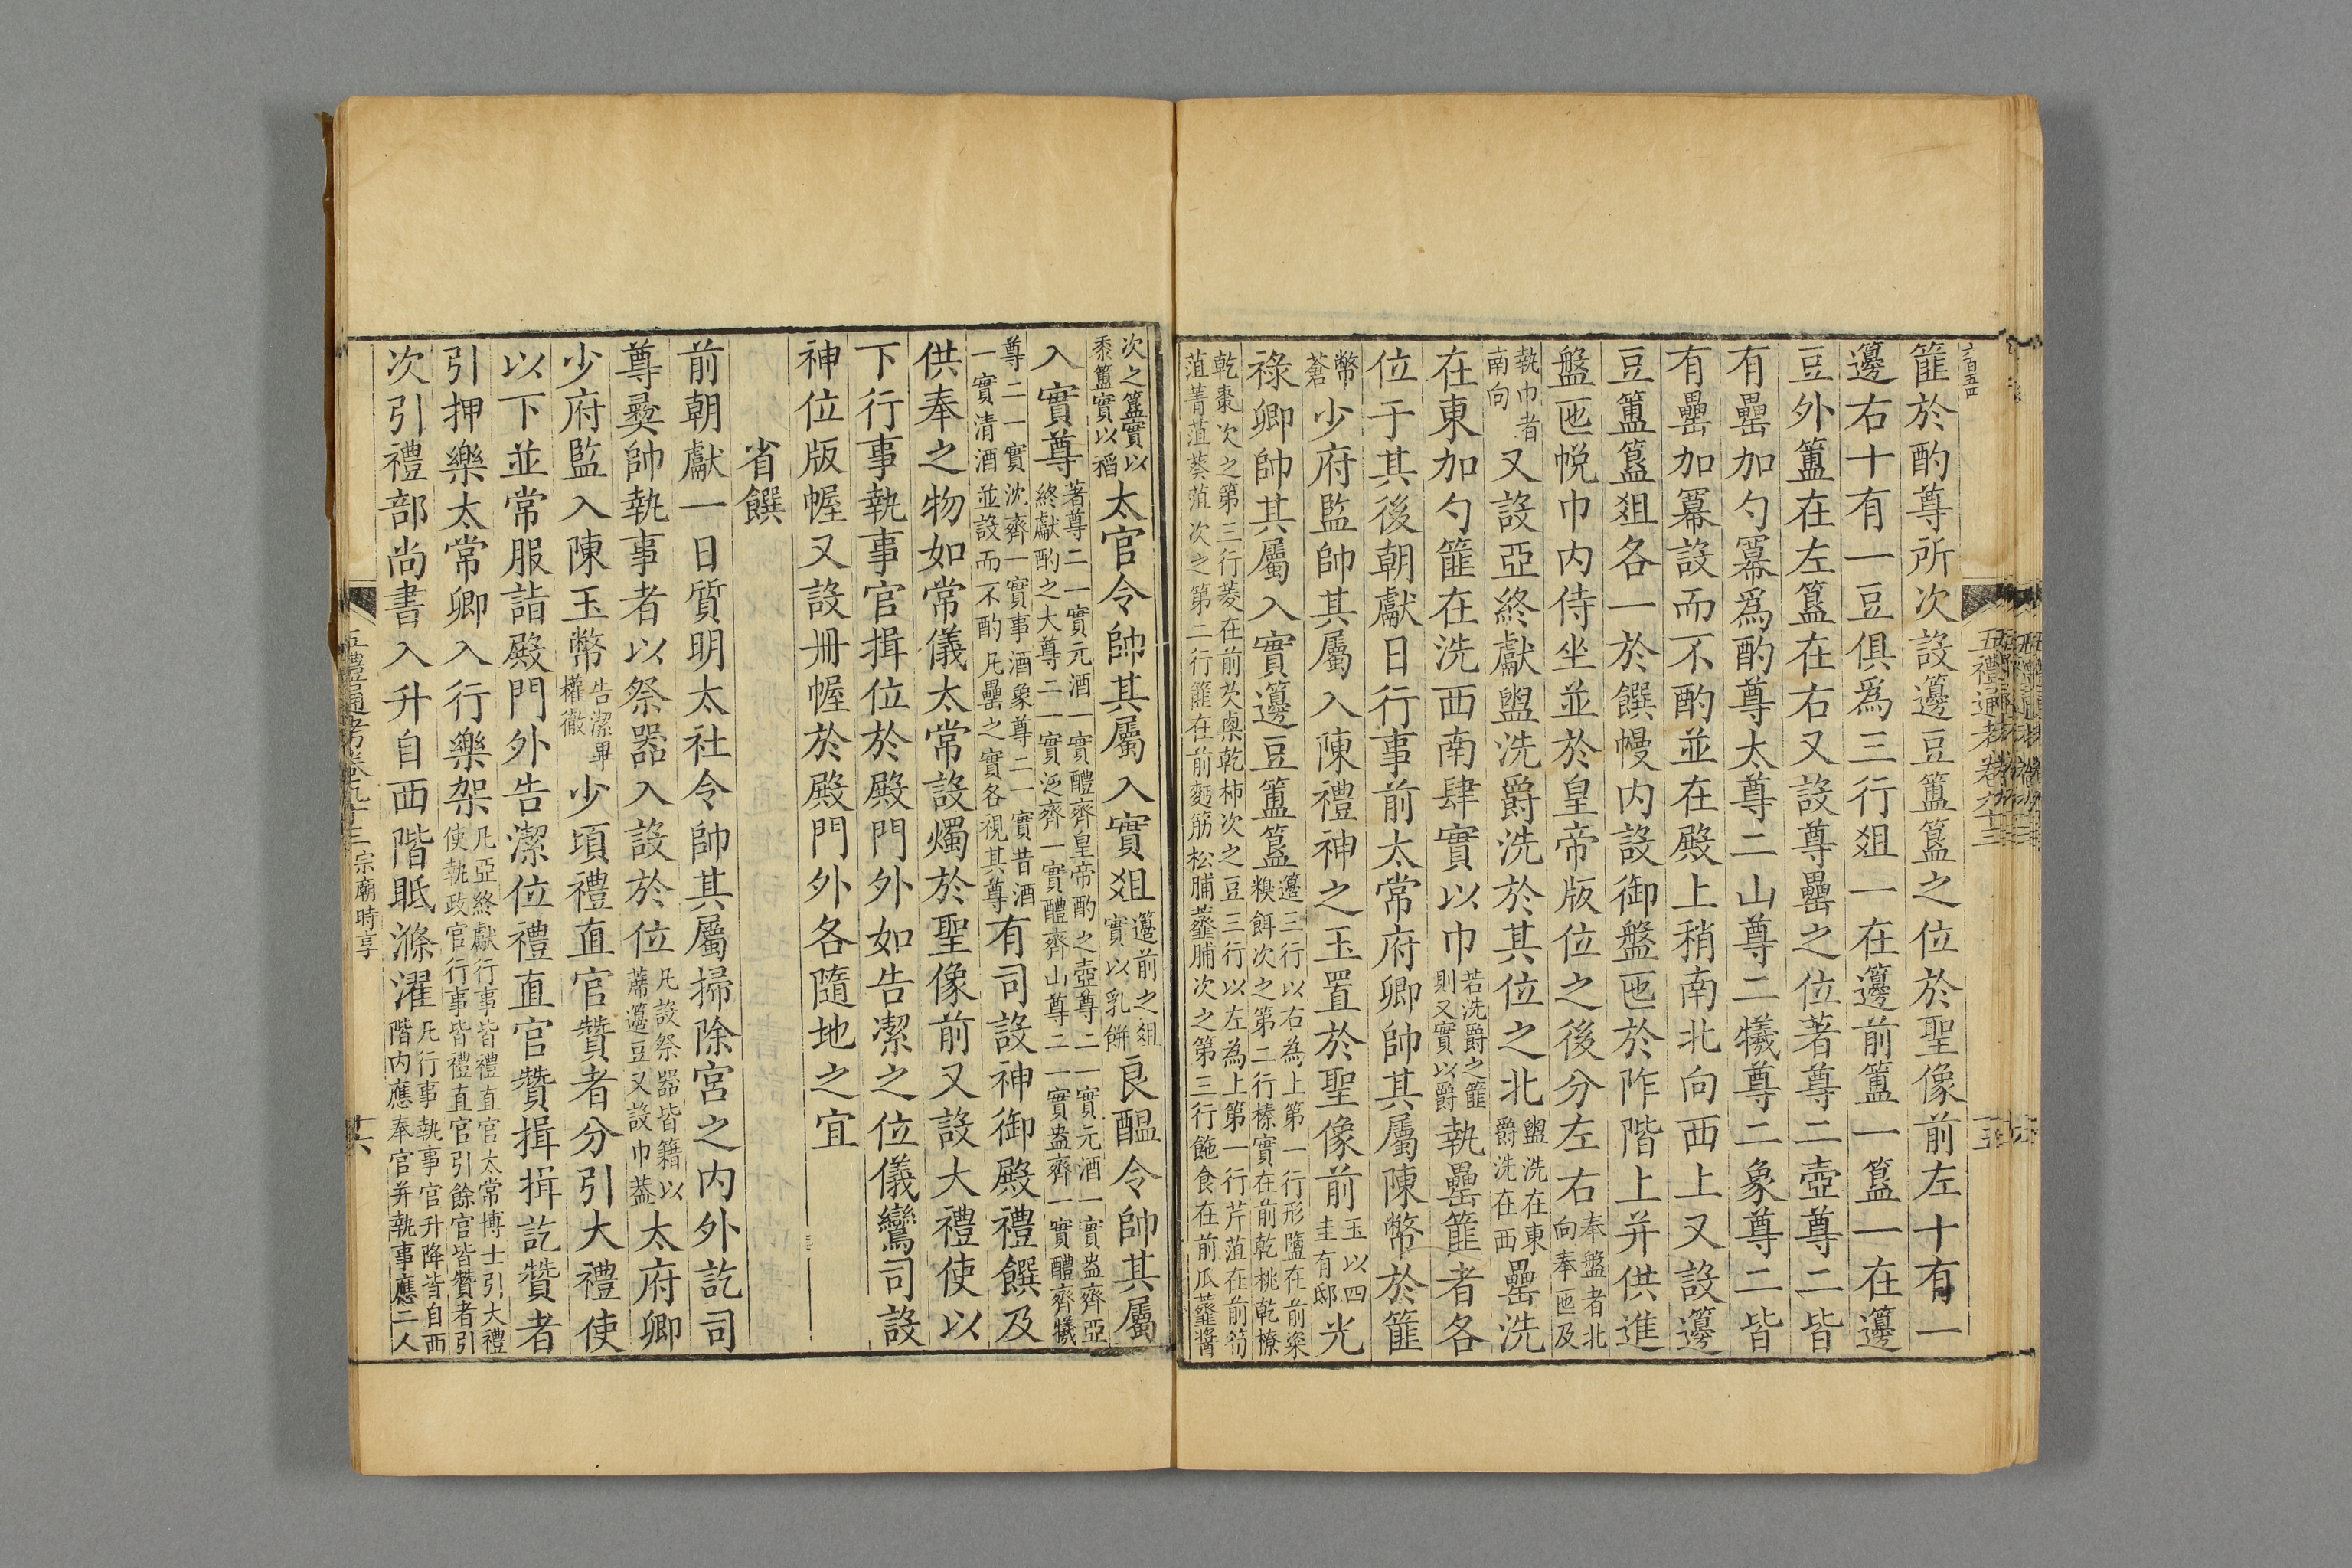 篚於酌尊所次設籩豆簠簋之位於聖像前左十有一
籩右十有一豆俱爲三行俎一在籩前簠一簋一在籩
豆外簠在左簋在右又設尊罍之位著尊二壺尊二皆
有罍加勺冪爲酌尊太尊二山尊二犧尊二象尊二皆
有罍加冪設而不酌並在殿上稍南北向西上又設籩
豆簠簋俎各一於饌幔内設御盤匜於阼階上并供進
盤匜帨巾内侍坐並於皇帝版位之後分左右奉盤者北向奉匜及
執巾者南向又設亞終獻盥洗爵洗於其位之北盥洗在東爵洗在西罍洗
在東加勺篚在洗西南肆實以巾若洗爵之篚則又實以爵執罍篚者各
位于其後朝獻日行事前太常府卿帥其屬陳幣於篚
幣蒼少府監帥其屬入陳禮神之玉置於聖像前玉以四圭有邸光
祿卿帥其屬入實籩豆簠簋籩三行以右為上第一行形鹽在前粢糗餌次之第二行榛實在前乾桃乾橑
乾棗次之第三行菱在前芡㮚乾柿次之豆三行以左為上第一行芹菹在前筍菹菁菹葵菹次之第二行篚在前麪筋松脯虀脯次之第三行飽食在前瓜虀醬
五禮通考卷九十三
十五
次之簋實以黍簠實以稻太官令帥其屬入實俎籩前之俎實以乳餅良醞令帥其屬
入實尊著尊二一實元酒一實醴齊皇帝酌之壺尊二一實元酒一實盎齊亞終獻酌之大尊二一實泛齊一實醴齊山尊二一實盎齊一實醴齊犧
尊二一實沈齊一實事酒象尊二一實昔酒一實清酒並設而不酌凡罍之實各視其尊有司設神御殿禮饌及
供奉之物如常儀太常設燭於聖像前又設大禮使以
下行事執事官揖位於殿門外如告潔之位儀鸞司設
神位版幄又設册幄於殿門外各隨地之宜
省饌
前朝獻一日質明太社令帥其屬掃除宮之内外訖司
尊彝帥執事者以祭器入設於位凡設祭器皆籍以蓆籩豆又設巾葢太府卿
少府監入陳玉幣告潔畢權徹少頃禮直官贊者分引大禮使
以下並常服詣殿門外告潔位禮直官贊揖揖訖贊者
引押樂太常卿入行樂架凡亞終獻行事皆禮直官太常博士引大禮使執政官行事皆禮直官引餘官皆贊者引
次引禮部尚書入升自西階眡滌濯凡行事執事官升降皆自西階内應奉官并執事應二人
五禮通考卷九十三 宗廟時享
十六